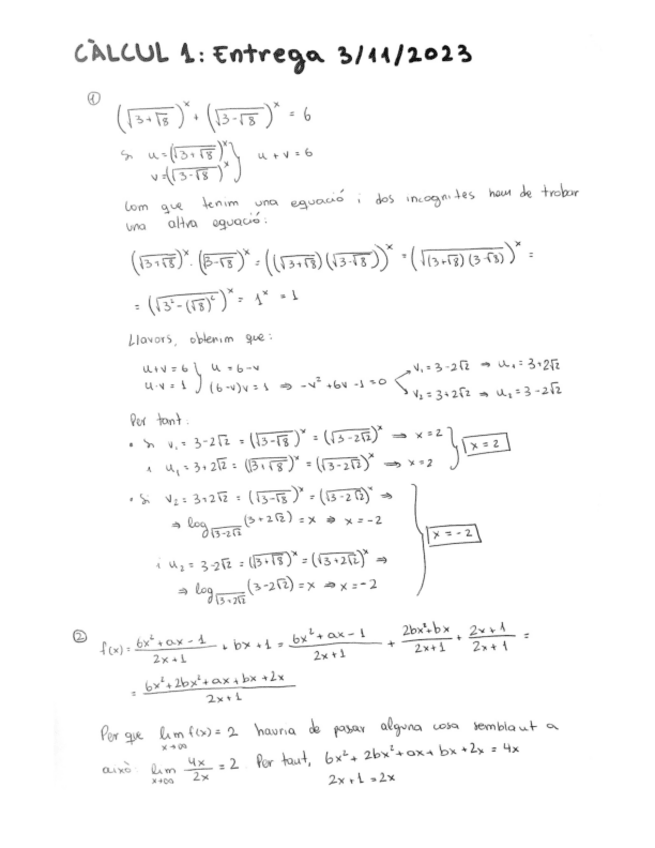 CÀLCUL 1: Entrega 3/11/2023
① (√(3+√8))^x + (√(3-√8))^x = 6
Si u = (√(3+√8))^x } u + v = 6
v = (√(3-√8))^x
Com que tenim una equació i dos incognites hem de trobar
una altra equació:
(√(3+√8))^x · (√(3-√8))^x = ((√(3+√8))(√(3-√8)))^x = (√((3+√8)(3-√8)))^x =
= (√(3²-(√8)²))^x = 1^x = 1
Llavors, obtenim que:
u+v = 6 } u = 6-v → v₁ = 3-2√2 ⇒ u₁ = 3+2√2
u·v = 1 } (6-v)v = 1 ⇒ -v² + 6v - 1 = 0 → v₂ = 3+2√2 ⇒ u₂ = 3-2√2
Per tant:
• Si v₁ = 3-2√2 = (√(3-√8))^x = (√(3-2√2))^x ⇒ x = 2 } x = 2
i u₁ = 3+2√2 = (√(3+√8))^x = (√(3-2√2))^x ⇒ x = 2
• Si v₂ = 3+2√2 = (√(3-√8))^x = (√(3-2√2))^x ⇒
⇒ log_√(3-2√2) (3+2√2) = x ⇒ x = -2 } x = -2
i u₂ = 3-2√2 = (√(3+√8))^x = (√(3+2√2))^x ⇒
⇒ log_√(3+2√2) (3-2√2) = x ⇒ x = -2
② f(x) = (6x²+ax-1)/(2x+1) + bx + 1 = (6x²+ax-1)/(2x+1) + (2bx²+bx)/(2x+1) + (2x+1)/(2x+1) =
= (6x²+2bx²+ax+bx+2x)/(2x+1)
Per que lim x→∞ f(x) = 2 hauria de pasar alguna cosa semblant a
això: lim x→∞ 4x/2x = 2. Per tant, 6x²+2bx²+ax+bx+2x = 4x
2x+1 = 2x